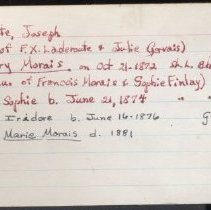 te, Joseph
of F.X. Laderoute & Julie Gervais)
ry Morais on Oct 21-1872 at L. Bl
au. of Francois Morais & Sophie Finlay)
Sophie b. June 21, 1874 "
Isadore b. June 16-1876 G
Marie Morais d. 1881